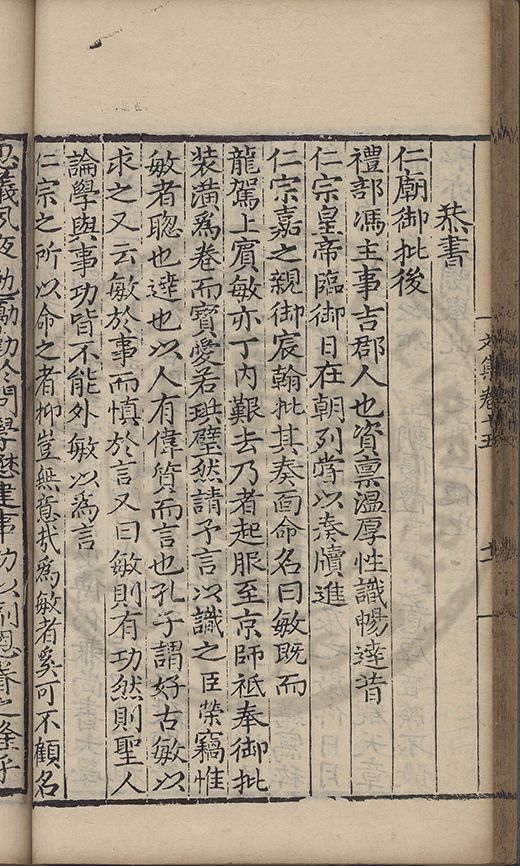 恭書
仁廟御批後
禮部馮主事吉郡人也資禀溫厚性識暢達昔
仁宗皇帝臨御日在朝列嘗以奏牘進
仁宗嘉之親御宸翰批其奏面命名曰敏既而
龍駕上賓敏亦丁內艱去乃者起服至京師祗奉御批
裝潢爲卷而寶愛若珙璧然請予言以識之臣榮竊惟
敏者聡也達也以人有偉質而言也孔子謂好古敏以
求之又云敏於事而慎於言又曰敏則有功然則聖人
論學與事功皆不能外敏以爲言
仁宗之所以命之者抑豈無意哉爲敏者奚可不顧名
思義夙夜勉勵勤於問學懋建事功以副恩眷之隆乎
文集卷十五
十一